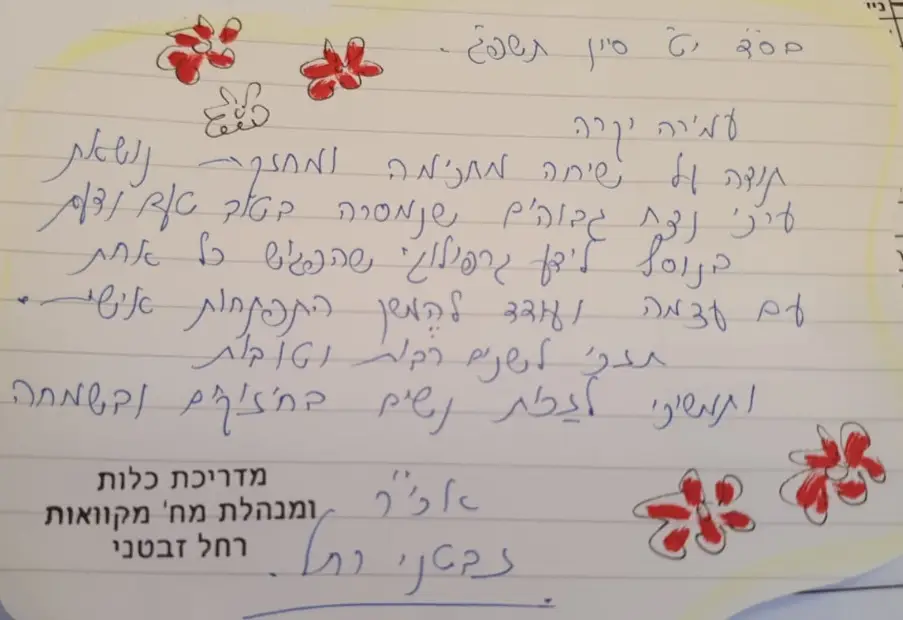 בס"ד י"ט סיון תשפ"ג.
עמירה יקרה
תודה על שיחה מחכימה ומחזקת נושאת
ערכי נצח גבוהים שנמסרה בטוב טעם ודעת
בנוסף לידע גרפולוגי שהפגיש כל אחת
עם עצמה ועודד להמשך התפתחות אישית.
תזכי לשנים רבות וטובות
ותמשיכי לזכות נשים בחיזוקים ובשמחה
אכי"ר
זבטני רחל.
מדריכת כלות
ומנהלת מח' מקוואות
רחל זבטני